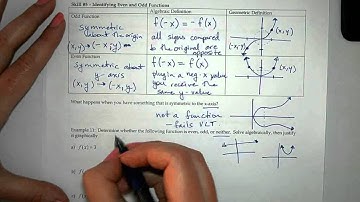 Skill #8 – Identifying Even and Odd Functions
Algebraic Definition
Geometric Definition
Odd Function
Symmetric
about the origin
(x,y) → (-x,-y)
f(-x) = -f(x)
all signs compared
to the original are
opposite
(x,y)
Even Function
Symmetric
about y-axis
(x,y) → (-x,y)
f(-x) = f(x)
plug in a neg. x value
you receive the
same y-value
(x,y)
What happens when you have something that is symmetric to the x-axis?
not a function
- fails VLT.
Example 11: Determine whether the following function is even, odd, or neither. Solve algebraically, then justify
it graphically
a) f(x) = 3